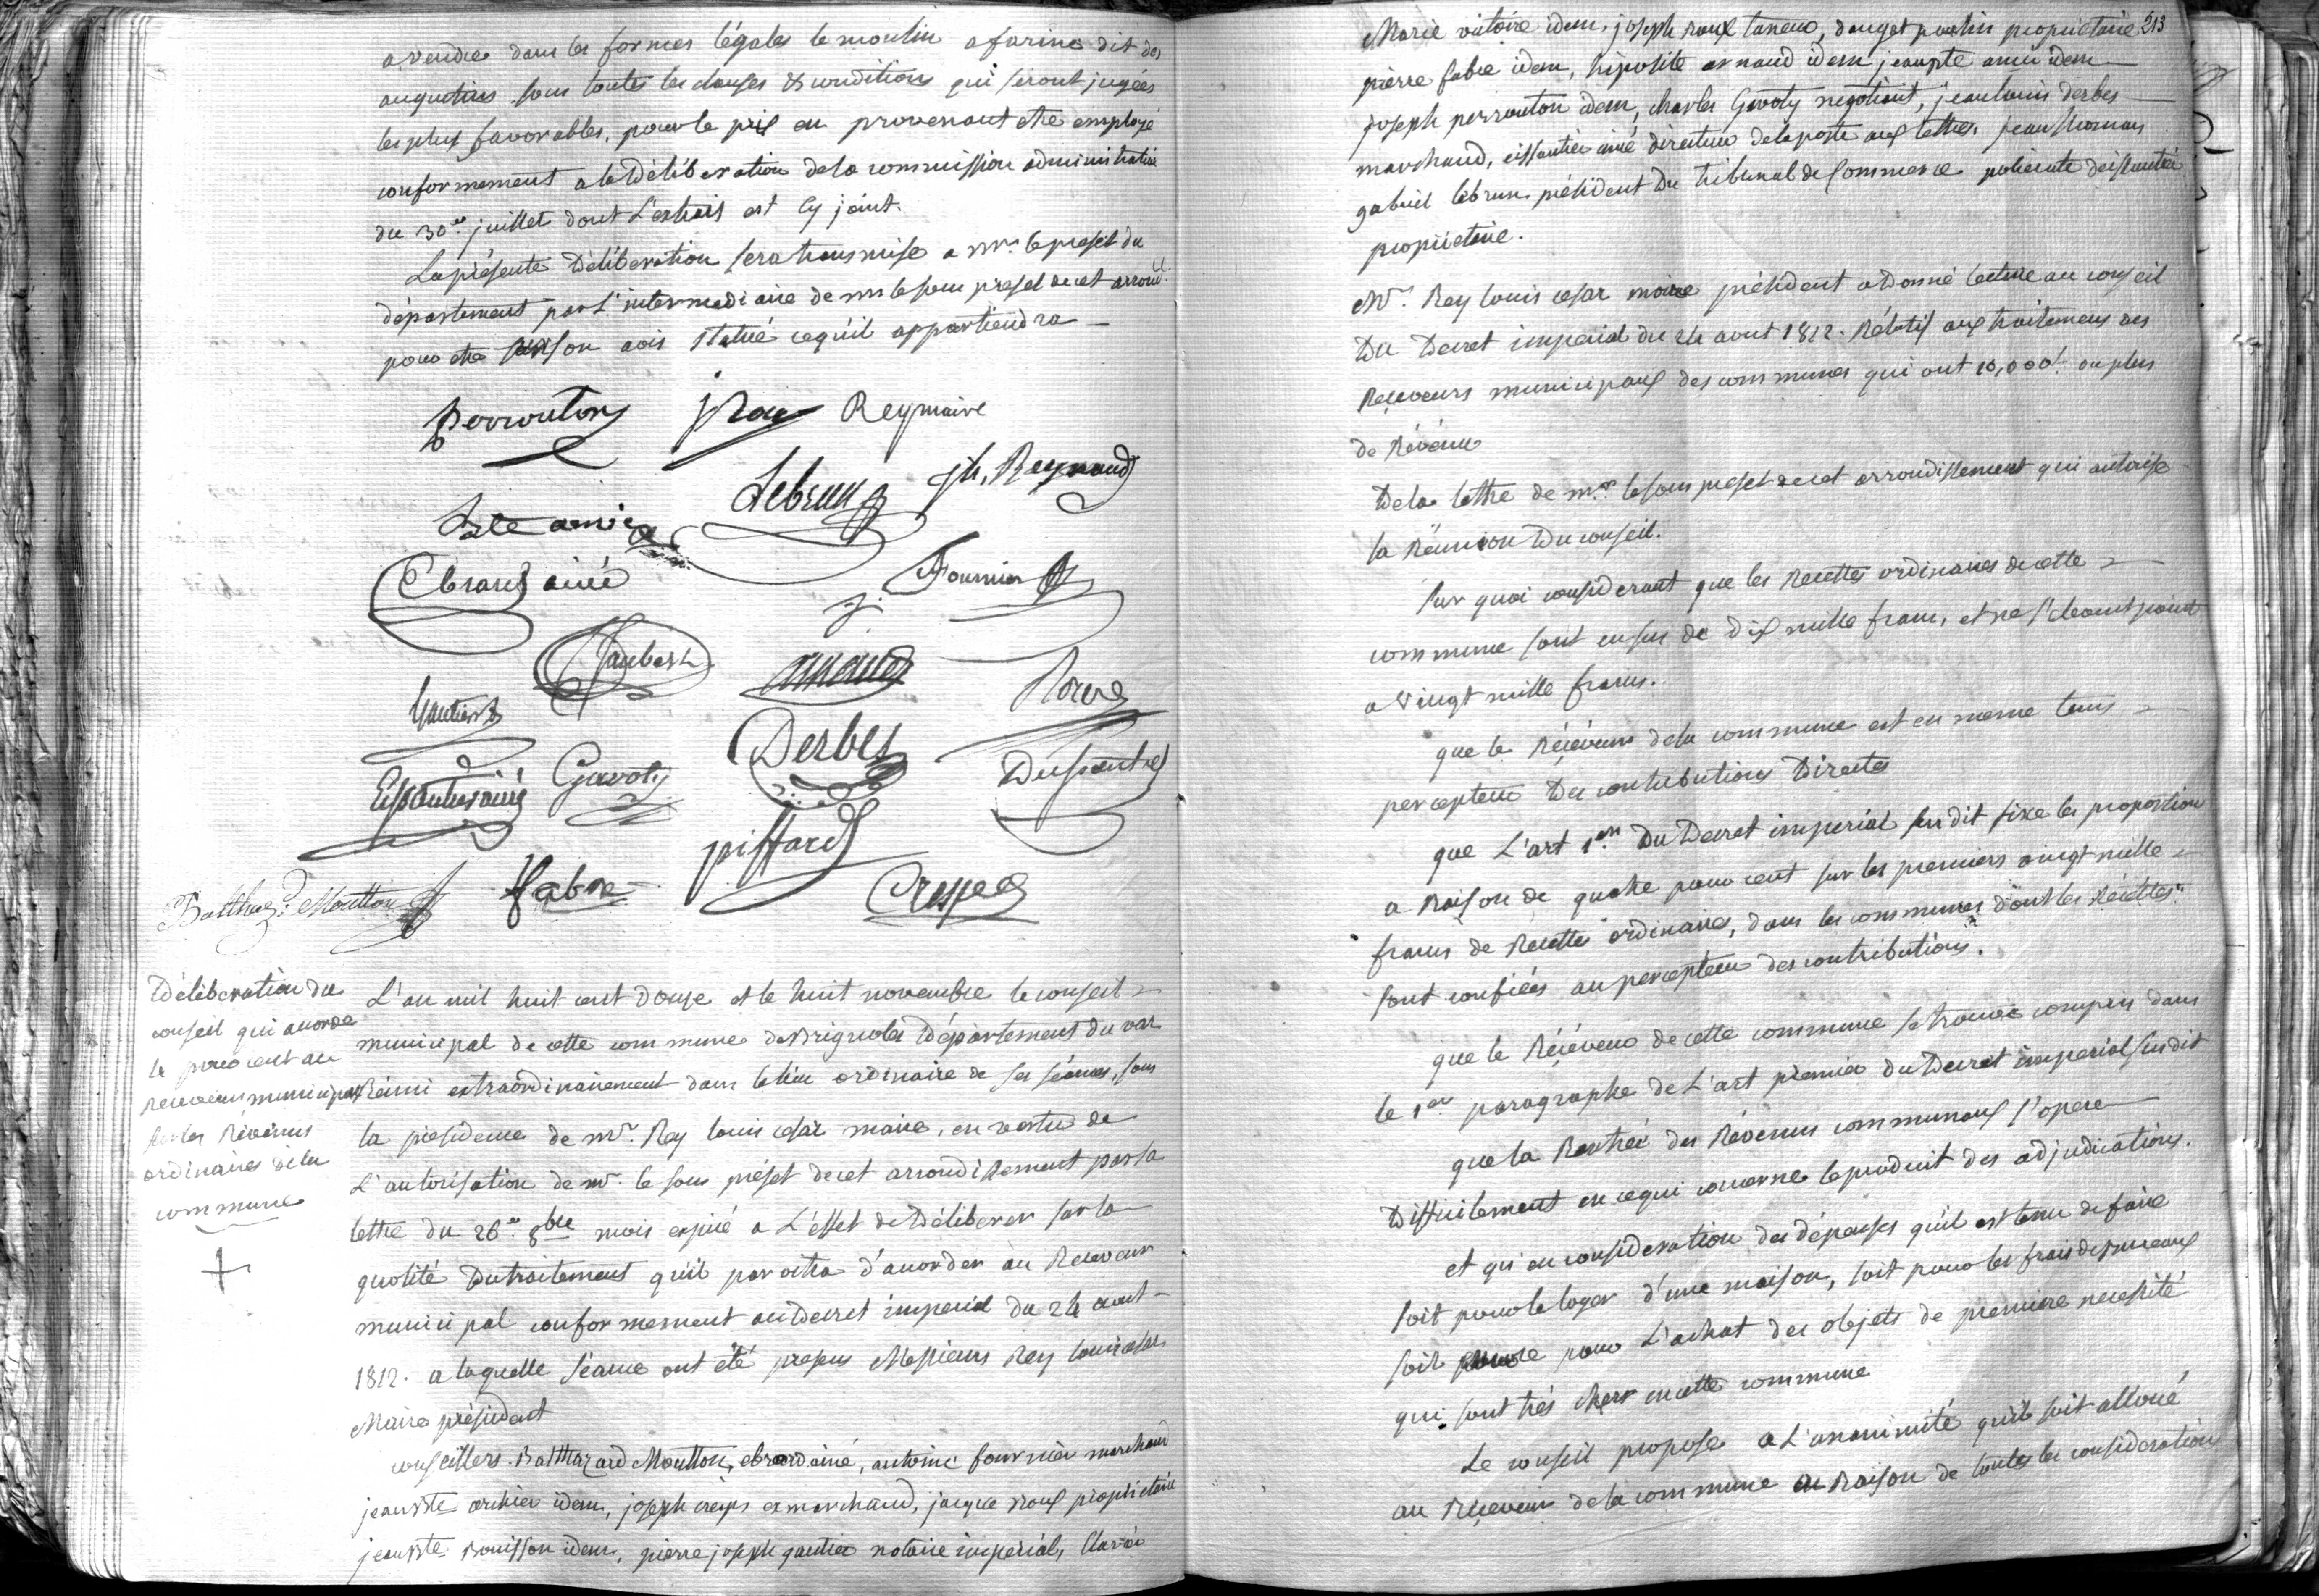 a vendre dans les formes légales le moulin a farine dit des
augustins sous toutes les clauses & conditions qui seront jugées
les plus favorables, pour le prix en provenant etre employé
conformement a la Délibération de la commission administrative
du 30e juillet dont L'extrait est cy joint.
La présente Délibération sera transmise a mr le prefet du
département par L'intermediaire de mr le sous prefet de cet arrond.t
pour etre son avis statué ce qu'il appartiendra
Perrouton
Rey maire
Lebrun
jh. Reynaud
Bte amic
Ebrard ainé
Fournier
Jaubert
arnaud
Roux
Gautier
Derbes
Eissautier ainé
Gavoty
piffard
fabre
Crespe
Balthazd Moutton
Déliberation du
conseil qui accorde
le pour cent au
receveur municipal
sur les Révenus
ordinaires de la
commune
L'an mil huit cent Douze et le huit novembre le conseil
municipal de cette commune de Brignoles Département du var
Réuni extraordinairement dans le lieu ordinaire de ses séances, sous
la presidence de mr. Rey louis cesar maire, en vertu de
L'autorisation de mr. le sous préfet de cet arrondissement par sa
lettre du 26e. 8bre mois expiré a L'effet de Déliberer sur la
quotité Du traitement qu'il paroitra d'accorder au Receveur
municipal conformement au Decret imperial du 24 aout
1812. a laquelle séance ont été presens Messieurs Rey louis cesar
Maire président
conseillers. Balthazard Moutton, ebrard ainé, antoine fournier marchand
jean Bte archier idem, joseph creps ex marchand, jacque Roux propriétaire
jean Bte Bouisson idem, pierre joseph gautier notaire impérial,
213
Marie victoire idem, joseph roux taneur, propriétaire
pierre fabre idem, hiposite arnaud idem jean bte amic idem
joseph perrouton idem, charles Gavoty négotiant, jean louis derbes
marchand, eissautier ainé directeur de la poste aux lettres, jean thomas
gabriel lebrun président Du tribunal de Commerce
propriétaire.
Mr. Rey louis cesar maire président a Donné lecture au conseil
Du Decret imperial du 24 aout 1812. Rélatif aux traitemens des
Receveurs municipaux des communes qui ont 10,000f. ou plus
de Révénu
De la lettre de mr. le sous prefet de cet arrondissement qui autorise
la Réunion Du conseil.
Sur quoi considerant que les Recettes ordinaires de cette
commune sont en sus de Dix mille francs, et ne s'élevant point
a vingt mille francs.
que le Récéveur de la commune est en meme tems
percepteur Des contributions Directes
que L'art 1er. Du Decret imperial susdit fixe les proportions
a Raison de quatre pour cent sur les premiers vingt mille
francs de Recettes ordinaires, dans les communes dont les Récettes
sont confiées au percepteur des contributions.
que le Récéveur de cette commune se trouve compris dans
le 1er paragraphe de L'art premier Du Decret imperial susdit
que la Rentrée des Révenus communaux s'opere
Difficilement en ce qui concerne le produit des adjudications.
et qu'en consideration des dépenses qu'il est tenu de faire
soit pour le loyer d'une maison, soit pour les frais de bureaux
soit pour L'achat des objets de premiere necessité
qui sont très chers en cette commune
Le conseil propose a L'unanimité qu'il soit alloué
au Receveur de la commune en Raison de toutes les considerations